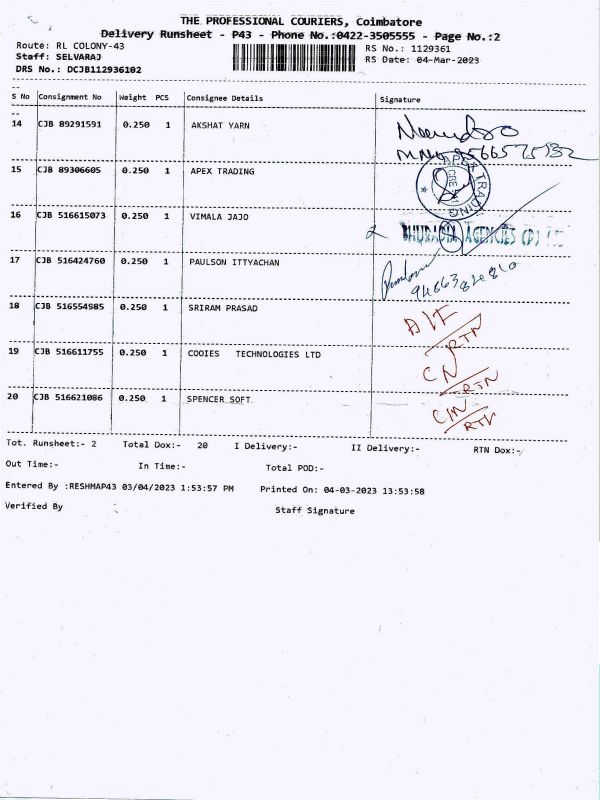 THE PROFESSIONAL COURIERS, Coimbatore
Delivery Runsheet - P43 - Phone No.:0422-3505555 - Page No.:2
Route: RL COLONY-43
RS No.: 1129361
Staff: SELVARAJ
RS Date: 04-Mar-2023
DRS No.: DCJB112936102
S No Consignment No Weight PCS Consignee Details Signature
14 CJB 89291591 0.250 1 AKSHAT YARN
15 CJB 89306605 0.250 1 APEX TRADING
APEX TRADING CBE
16 CJB 516615073 0.250 1 VIMALA JAJO
AGENCIES (P)
17 CJB 516424760 0.250 1 PAULSON ITTYACHAN
18 CJB 516554985 0.250 1 SRIRAM PRASAD
RTN
19 CJB 516611755 0.250 1 COOIES TECHNOLOGIES LTD
CN
RTN
20 CJB 516621086 0.250 1 SPENCER SOFT
RTN
Tot. Runsheet:- 2 Total Dox:- 20 I Delivery:- II Delivery:- RTN Dox:-
Out Time:- In Time:- Total POD:-
Entered By :RESHMAP43 03/04/2023 1:53:57 PM Printed On: 04-03-2023 13:53:58
Verified By Staff Signature